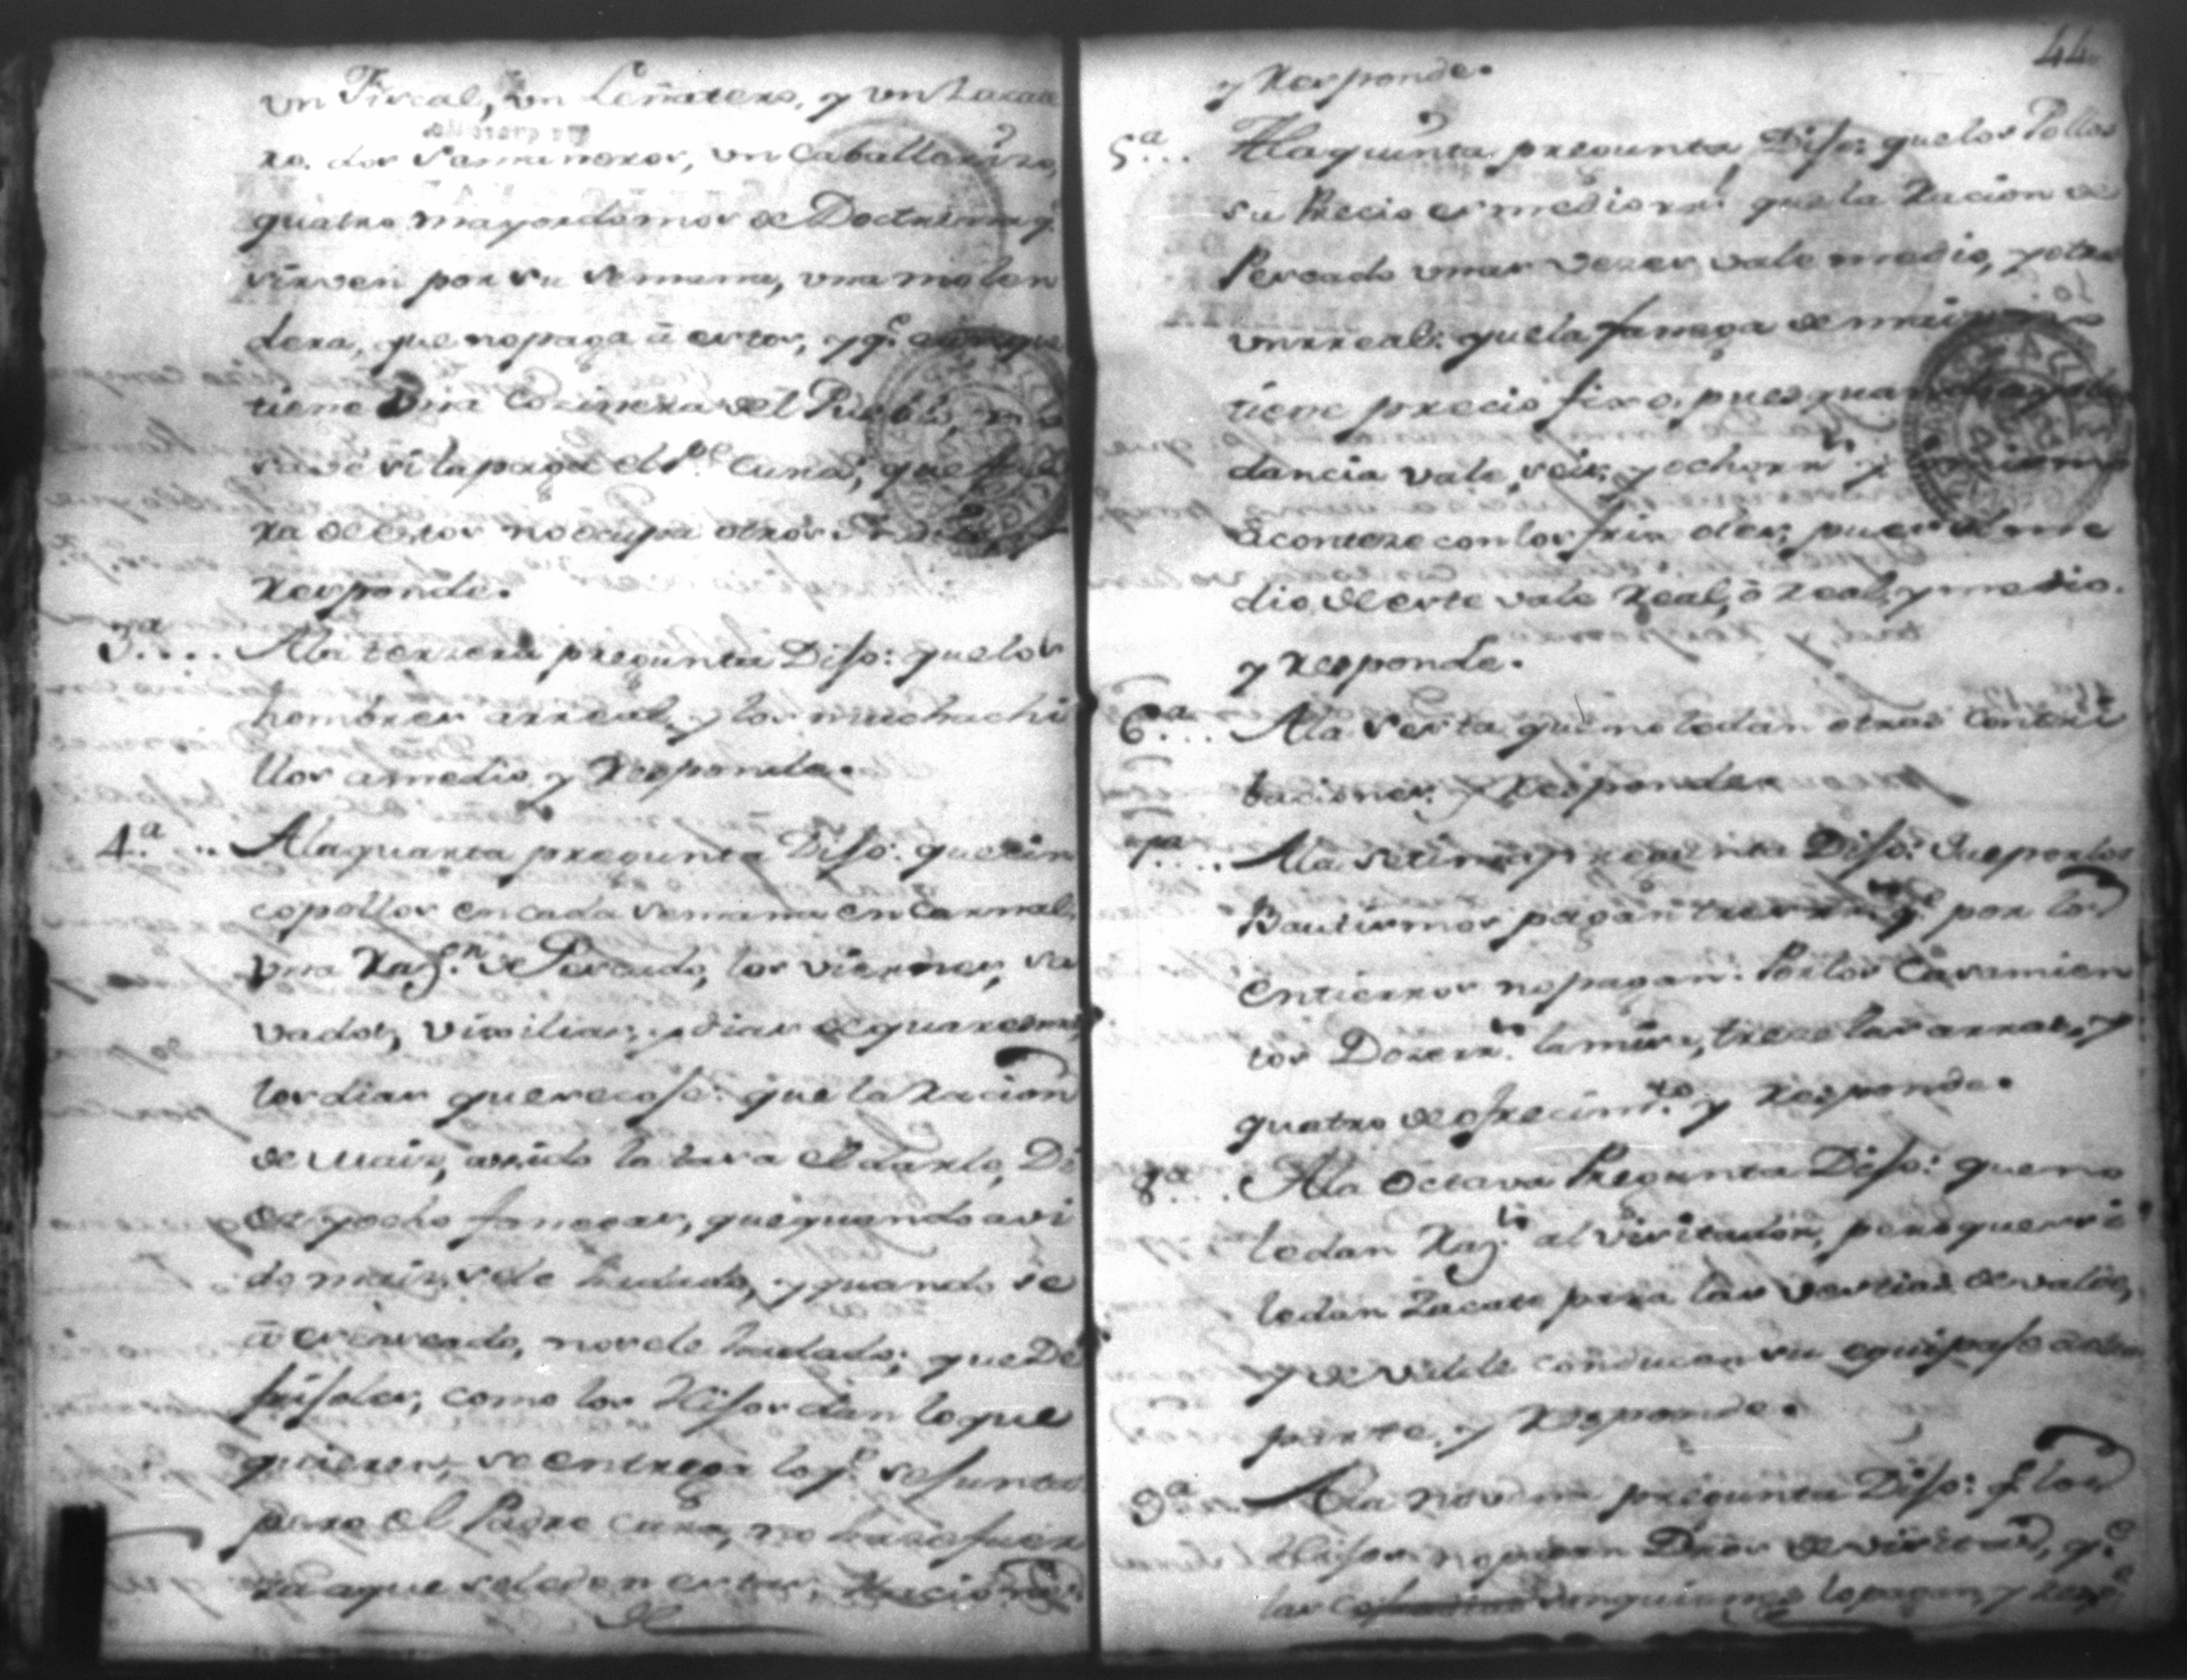 un Fiscal, un Leñatero, y un Zacate
ro. dos Samineros, un Caballeriso,
quatro mayordomos de Doctrina q.e
sirven por su semana, una molen
dera, que no paga â estos, y q.e
tiene una Cosinera del Pueblo, no
save si la paga el P.e Cura, que fue
ra de estos no ocupa otros Yndios, y
Responde.
3.a.... A la terzera pregunta Dijo: que los
hombres a rreal, y los muchachi
llos a medio, y Responde.
4.a... A la quarta pregunta Dijo: que sin
co pollos en cada semana en Carnal,
una Raz.n de Pescado, los viernes, sa
vados, vixilias, y dias de quaresma,
los dias que recose: que la Racion
de Maiz, asido la tasa el darle, Di
es y ocho fanegas, que quando a vi
do maiz, sele ha dado, y quando se
â escaseado, no sele ha dado; que De
frisoles, como los Hijos dan lo que
quieren, se entrega lo q.e se junta
pero el Padre Cura, no hase fuer
za a que sele den estas, Raciones
44.
y Responde.
5.a... A la quinta pregunta Dijo: que los Pollos
su Precio es medio rr.l que la Racion de
Pescado unas vezes vale medio, y otras
un rreal: que la fanega de maiz no
tiene precio fixo, pues quando ay abun
dancia vale, seis, y ocho rr.s y
aconteze con los frix oles, pues el me
dio de este vale Real, ô Real y medio.
y Responde.
6.a... A la sesta que no le dan otras Contri
buciones. y Responde.
7.a.... A la setima pregunta Dijo: Que por los
Bautismos pagan tres rr.s q.e por los
entierros no pagan. Por los Casamien
tos Doze rr.s la misa, treze las arras, y
quatro de ofrecim.to y Responde.
8.a.... A la Octava Pregunta Dijo: que no
le dan Raz.s al Visitador, pero que si
le dan Zacate para las vestias de valde,
y de valde conducen su equipaje a otra
parte, y Responde.
9.a A la novena pregunta Dijo: q.e los
Hijos no pagan Dros de visita, q.e
las Cofradias lo pagan, y Resp.e